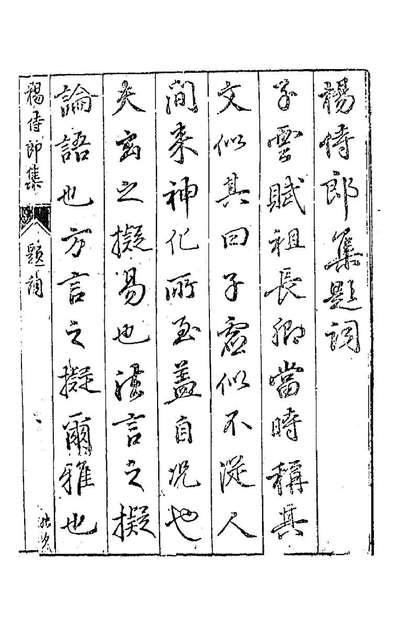 楊侍郎集題詞
子雲賦祖長卿當時稱其
文似其曰子虛似不從人
間來神化所至蓋自況也
夫玄之擬易也法言之擬
論語也方言之擬爾雅也
楊侍郎集
題詞